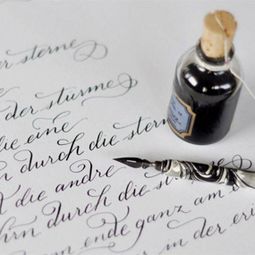 der sterne
der stürme
die eine
n durch die stern
t die andre
ihn durch die st
nn ende ganz am e
in der eri